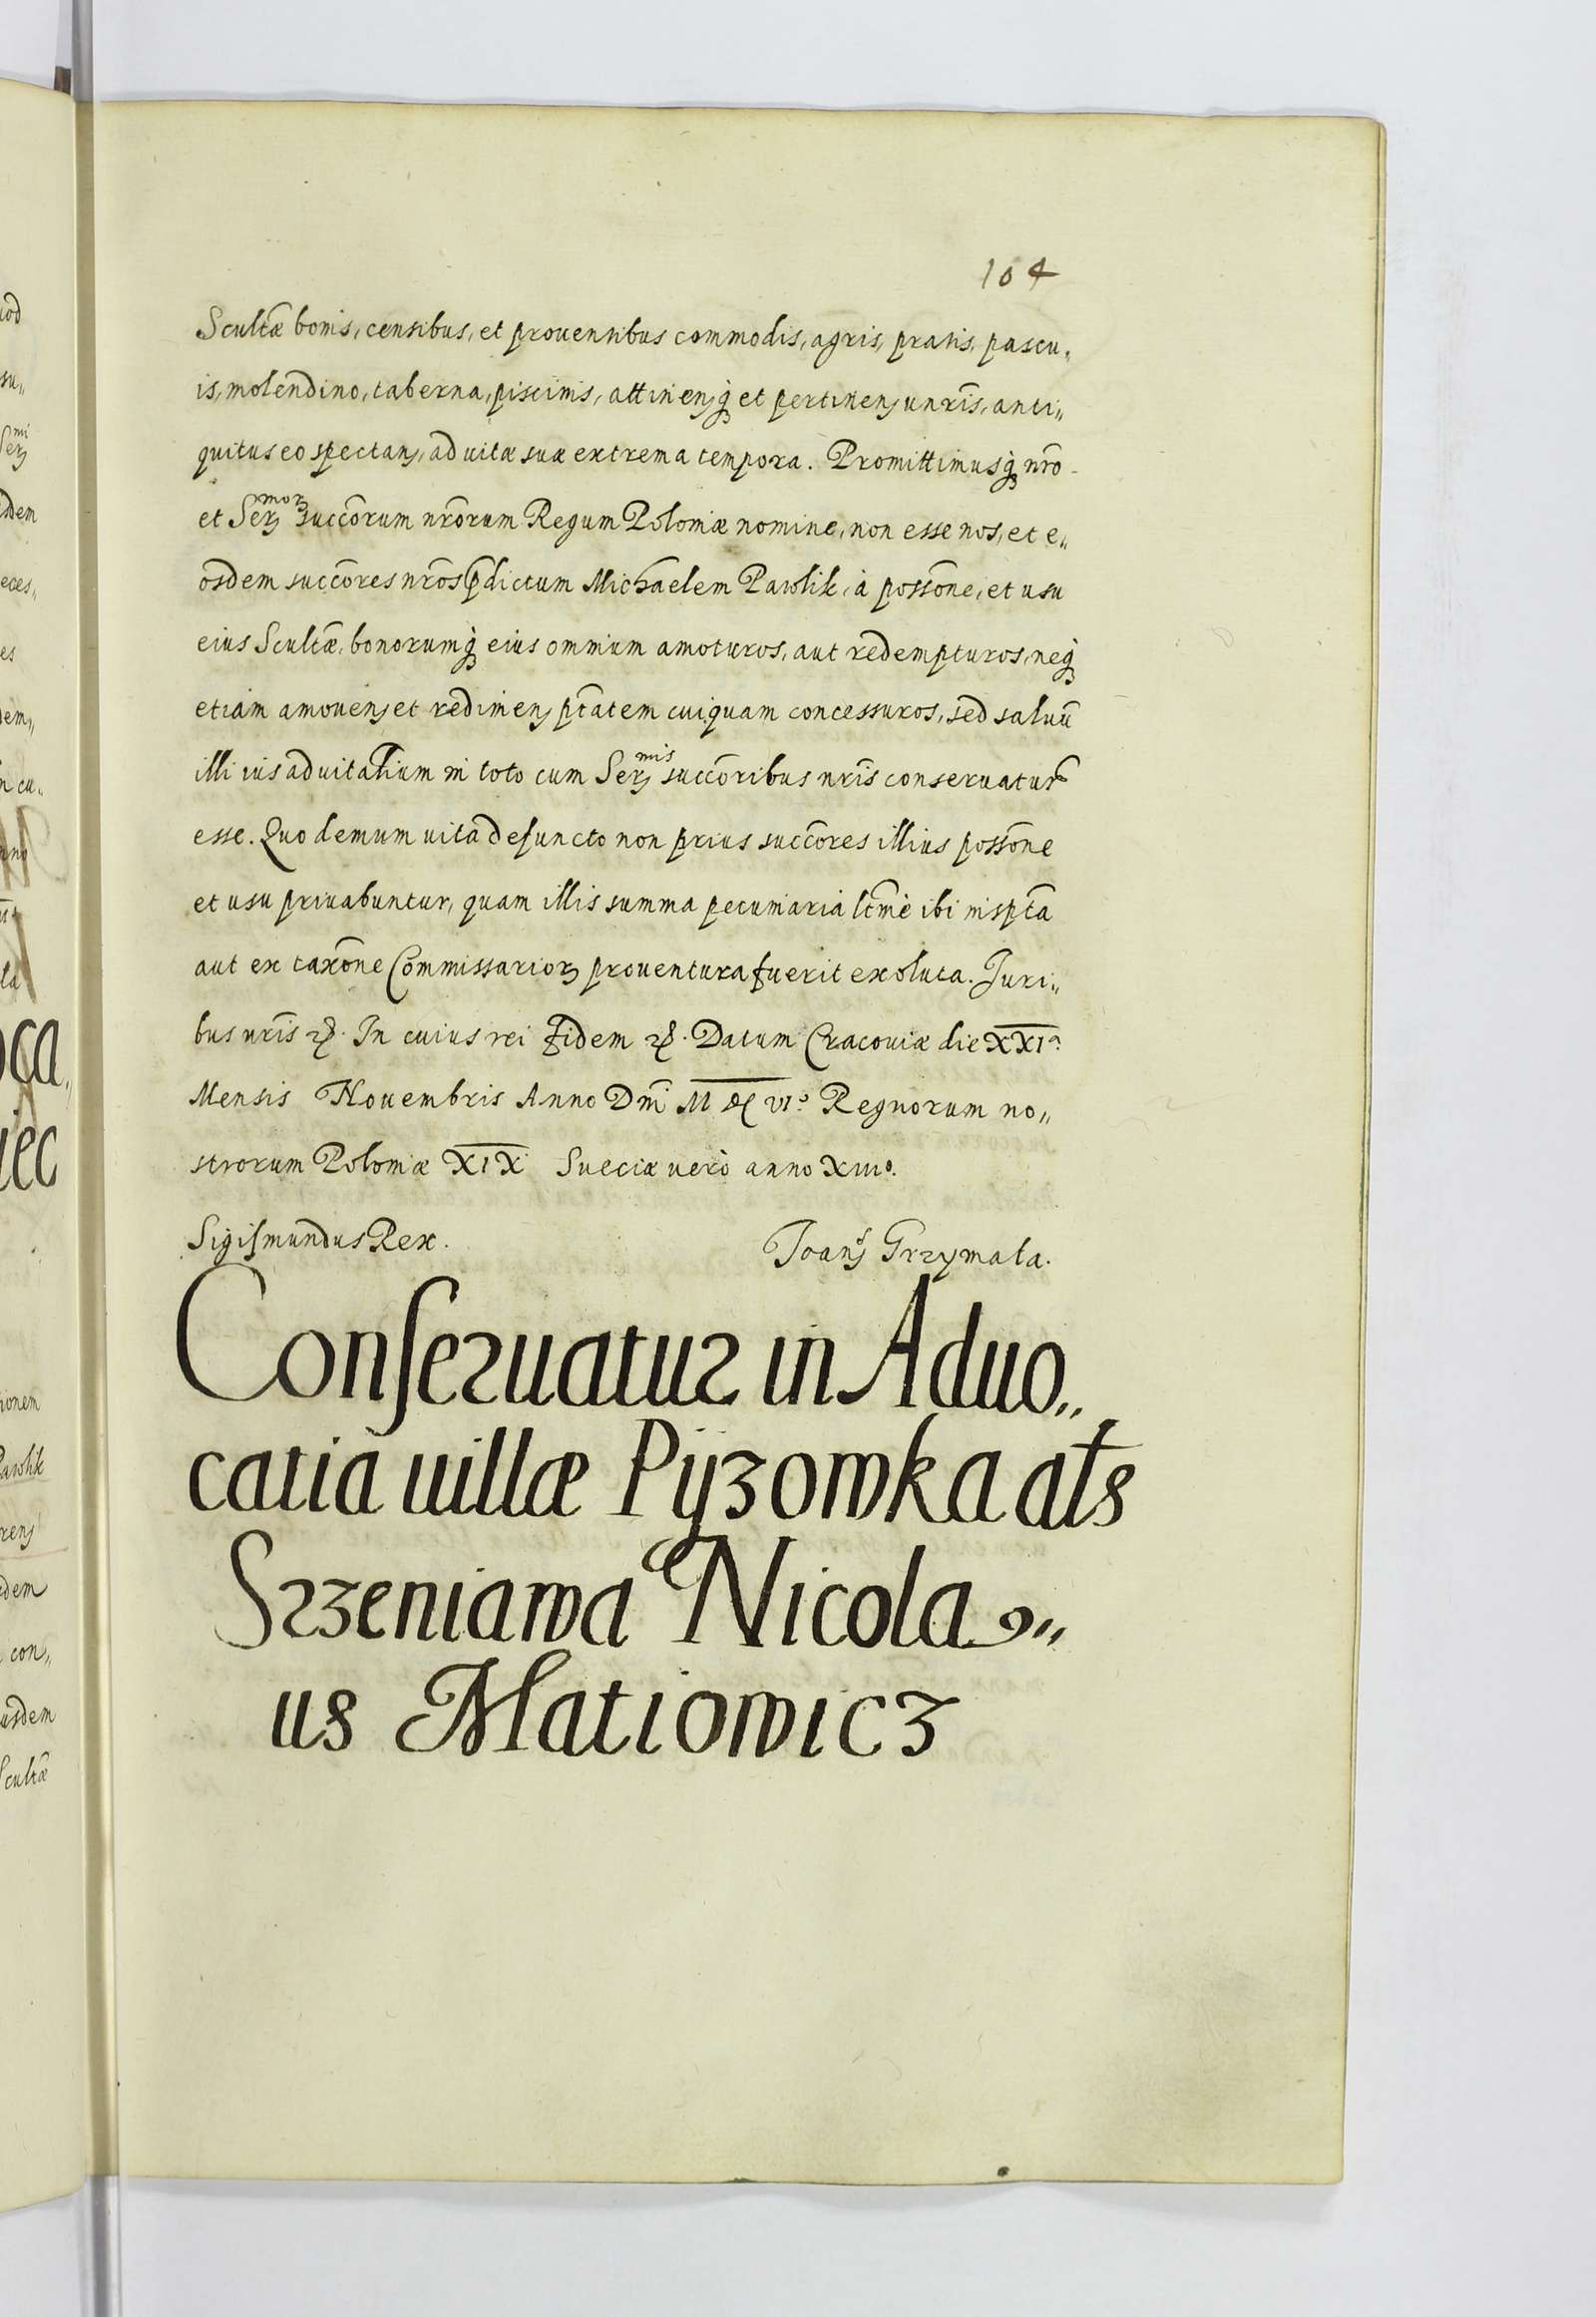 104
Scultæ bonis, censibus, et prouentibus commodis, agris, pratis, pascu„
is, molendino, taberna, piscinis, attinen̄ꝫq̃ et pertinen̄ꝫ unr̃is, anti„
quitus eo spectanꝫ, ad uitæ suæ extrema tempora. Promittimusq̃ nr̃o
et Serꝫmorꝫ succ̃orum nr̃orum Regum Poloniæ nomine, non esse nos, et e„
osdem succ̃ores nr̃os p̃dictum Michaelem Pawlik, à poss̃one, et usu
eius Scultæ, bonorumq̃ eius omnium amoturos, aut redempturos, neq̃
etiam amouenꝫ et redimenꝫ pt̃atem cuiquam concessuros, sed saluũ
illi ius aduitalium in toto cum Serꝫmis succ̃oribus nr̃is conseruatur̃
esse. Quo demum uita defuncto non prius succ̃ores illius poss̃one
et usu priuabuntur, quam illis summa pecuniaria lt̃mè ibi inspt̃a
aut ex tax̃one Commissariorꝫ prouentura fuerit exoluta. Juri„
bus nr̃is ꝛꝭ. In cuius rei fidem ꝛꝭ. Datum Cracouiæ die XXIa.
Mensis Nouembris Anno Dñi M DC VIo. Regnorum no„
strorum Poloniæ XIX Sueciæ uerò anno XIIIo.
Sigismundus Rex.
Joanꝫs Grzymala.
Conseruatur in Aduo„
catia uillæ Pyzowka als
Srzeniawa Nicola„
us Matiowicz